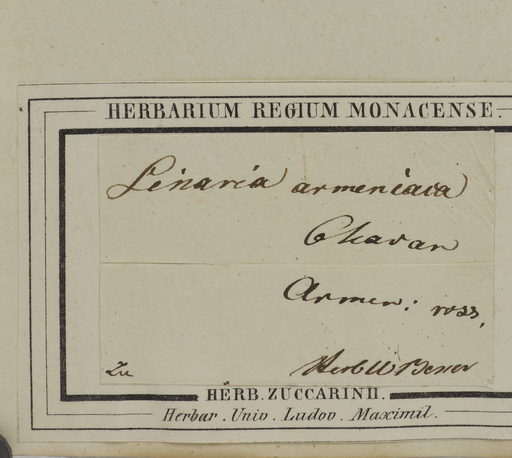 HERBARIUM REGIUM MONACENSE.
Linaria armeniaca
Chavan
Armen: ross.
Zu
HERB. ZUCCARINII.
Herbar. Univ. Ludov. Maximil.